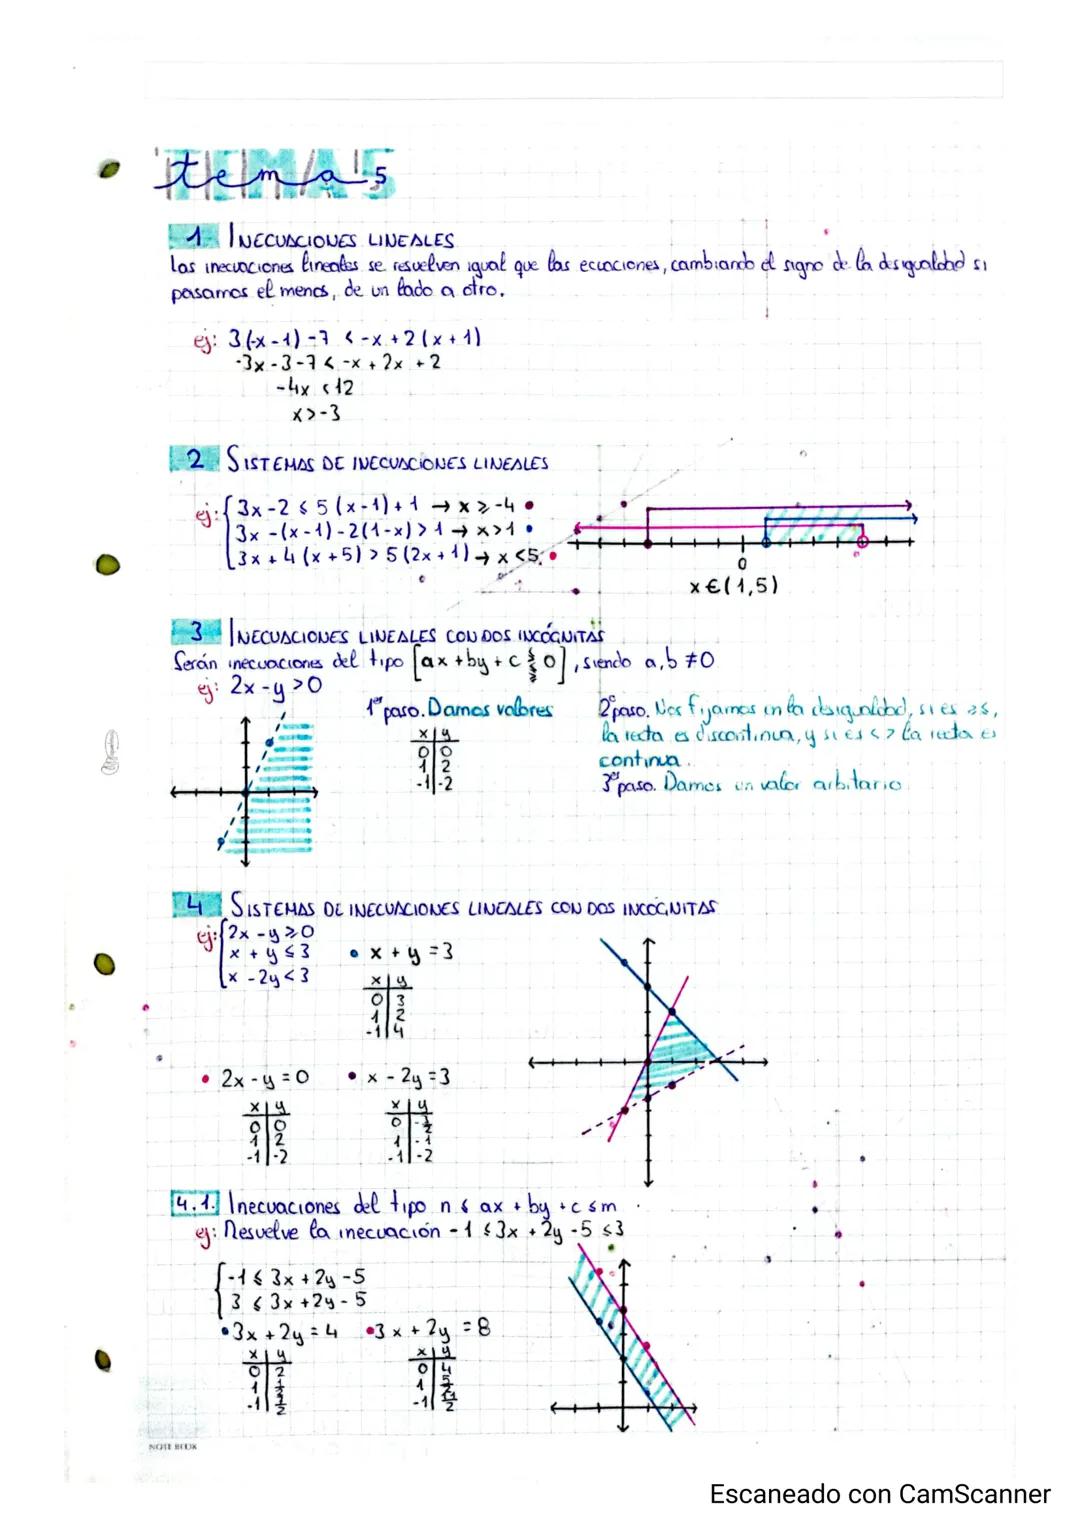 tema 5
1 INECUACIONES LINEALES
Las inecuaciones lineales se resuelven igual que las ecuaciones, cambiando el signo de la desigualdad si
pasamos el menos, de un lado a otro.
ej: 3(-x-1)-7 < -x+2(x+1)
-3x-3-7 < -x+2x+2
-4x < 12
x > -3
2 SISTEMAS DE INECUACIONES LINEALES
ej: { 3x-2 ≤ 5(x-1)+1 → x ≥ -4
3x-(x-1)-2(1-x) > 1 → x > 1
3x+4(x+5) > 5(2x+1) → x < 5
0
x € (1,5)
3 INECUACIONES LINEALES CON DOS INCÓGNITAS
Serán inecuaciones del tipo [ax+by+c ≶ 0], siendo a,b ≠ 0
ej: 2x-y > 0
1er paso. Damos valores
x | y
0 | 0
1 | 2
-1 | -2
2º paso. Nos fijamos en la desigualdad, si es ≥ ≤,
la recta es discontinua, y si es < > la recta es
continua.
3er paso. Damos un valor arbitario
4 SISTEMAS DE INECUACIONES LINEALES CON DOS INCÓGNITAS
ej: { 2x-y ≥ 0
x+y ≤ 3
x-2y < 3
• x+y = 3
x | y
0 | 3
1 | 2
-1 | 4
• 2x-y = 0
x | y
0 | 0
1 | 2
-1 | -2
• x-2y = 3
x | y
0 | -3/2
1 | -1
-1 | -2
4.1. Inecuaciones del tipo n ≤ ax+by+c ≤ m
ej: Resuelve la inecuación -1 ≤ 3x+2y-5 ≤ 3
{ -1 ≤ 3x+2y-5
3 ≤ 3x+2y-5
• 3x+2y = 4
x | y
0 | 2
1 | 1/2
-1 | 7/2
• 3x+2y = 8
x | y
0 | 4
1 | 5/2
-1 | 11/2
NOTE BOOK
Escaneado con CamScanner